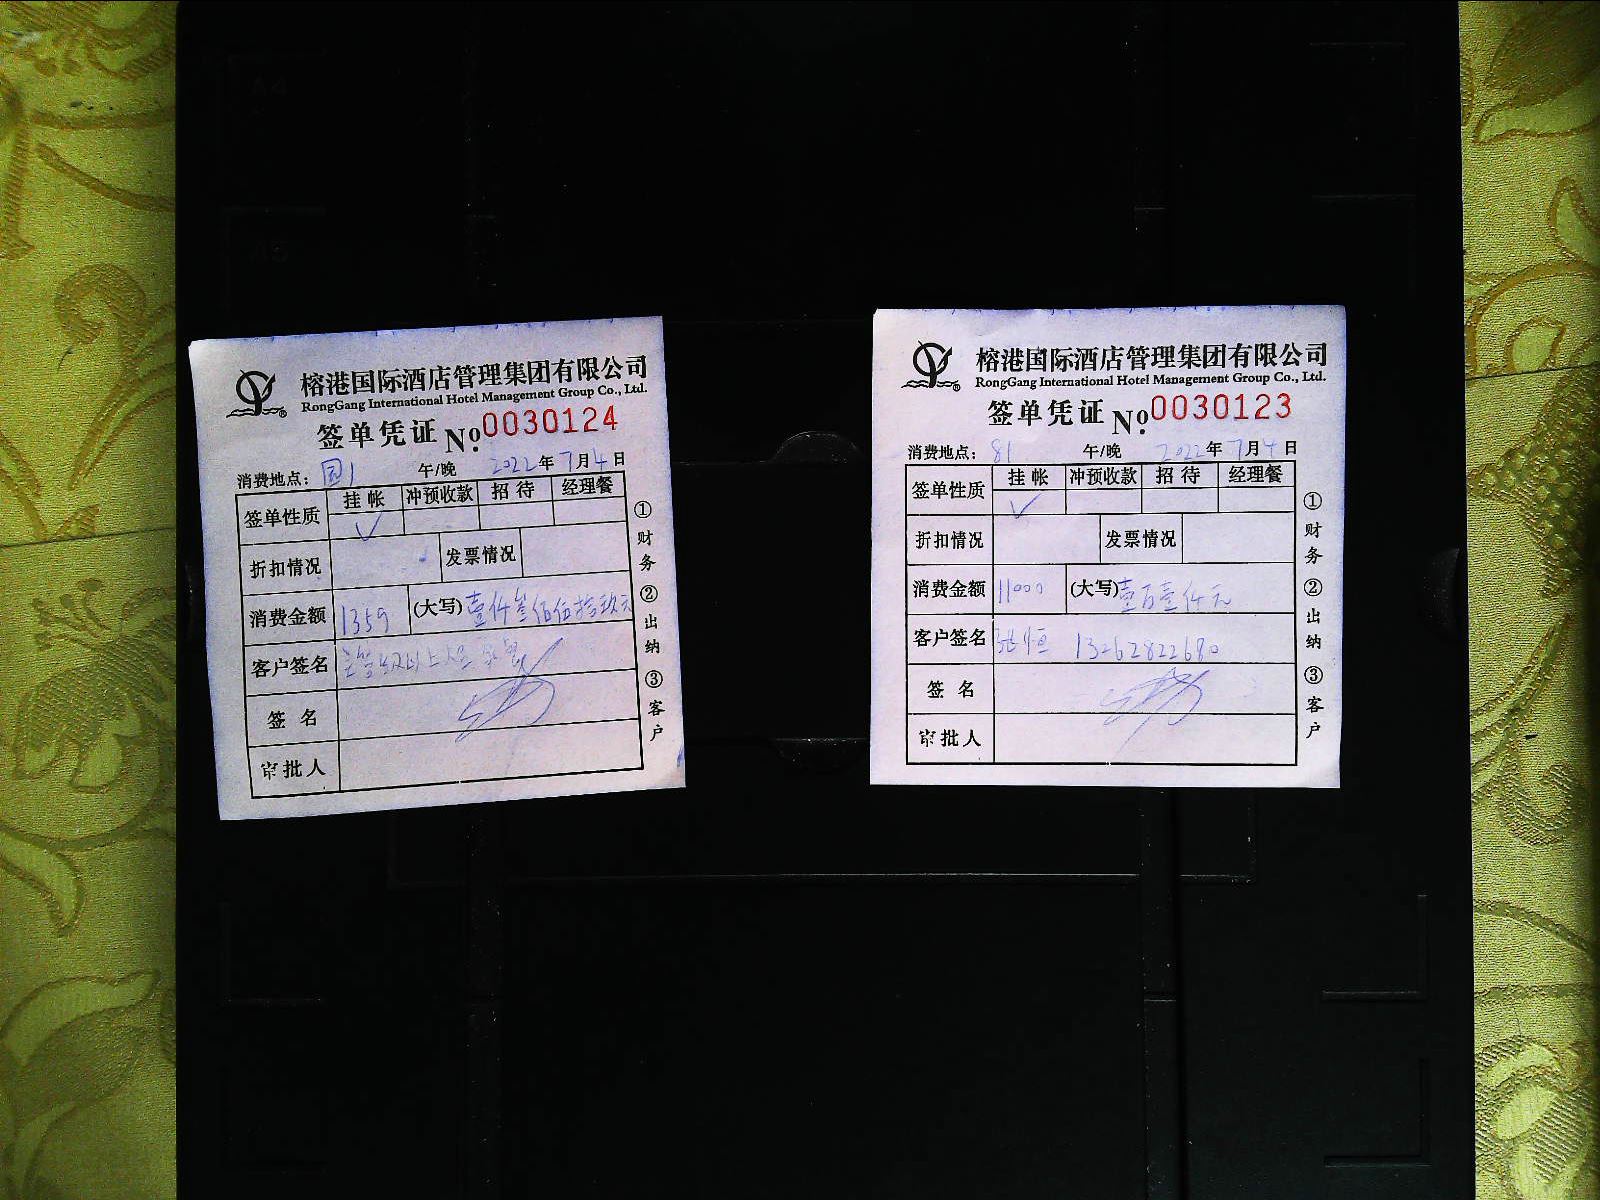 榕港国际酒店管理集团有限公司
RongGang International Hotel Management Group Co., Ltd.
签单凭证 No. 0030124
消费地点: 国1 午/晚 2022年7月4日
签单性质 挂帐 冲预收款 招待 经理餐
✓
折扣情况 发票情况
消费金额 1359 (大写) 壹仟叁佰伍拾玖元
客户签名
签名
审批人
①财务 ②出纳 ③客户
榕港国际酒店管理集团有限公司
RongGang International Hotel Management Group Co., Ltd.
签单凭证 No. 0030123
消费地点: 81 午/晚 2022年7月4日
签单性质 挂帐 冲预收款 招待 经理餐
✓
折扣情况 发票情况
消费金额 11000 (大写) 壹万壹仟元
客户签名 张恒 13262822680
签名
审批人
①财务 ②出纳 ③客户